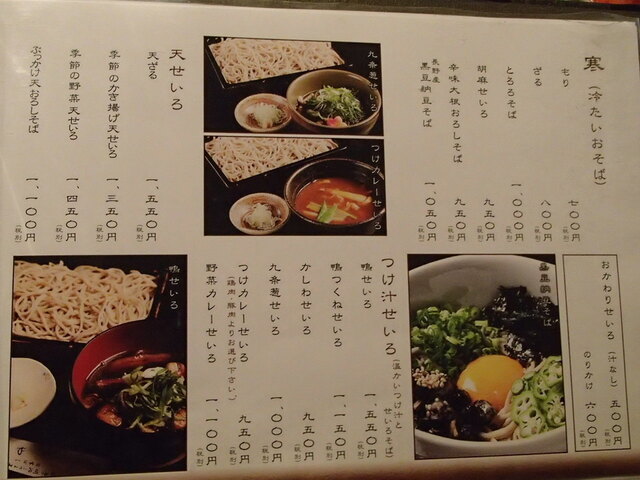 寒（冷たいおそば）
もり 七〇〇円（税別）
ざる 八〇〇円（税別）
とろろそば 一、〇〇〇円（税別）
胡麻せいろ 九五〇円（税別）
辛味大根おろしそば 九五〇円（税別）
長野産
黒豆納豆そば 一、〇五〇円（税別）
九条葱せいろ
つけカレーせいろ
天せいろ
天ざる 一、五五〇円（税別）
季節のかき揚げ天せいろ 一、三五〇円（税別）
季節の野菜天せいろ 一、四五〇円（税別）
ぶっかけ天おろしそば 一、一〇〇円（税別）
おかわりせいろ（汁なし） 五〇〇円（税別）
のりかけ 六〇〇円（税別）
つけ汁せいろ（温かいつけ汁と
せいろそば）
鴨せいろ 一、五五〇円（税別）
鴨つくねせいろ 一、一五〇円（税別）
かしわせいろ 九五〇円（税別）
九条葱せいろ 一、〇〇〇円（税別）
つけカレーせいろ 九五〇円（税別）
（鶏肉、豚肉よりお選び下さい。）
野菜カレーせいろ 一、一〇〇円（税別）
鴨せいろ